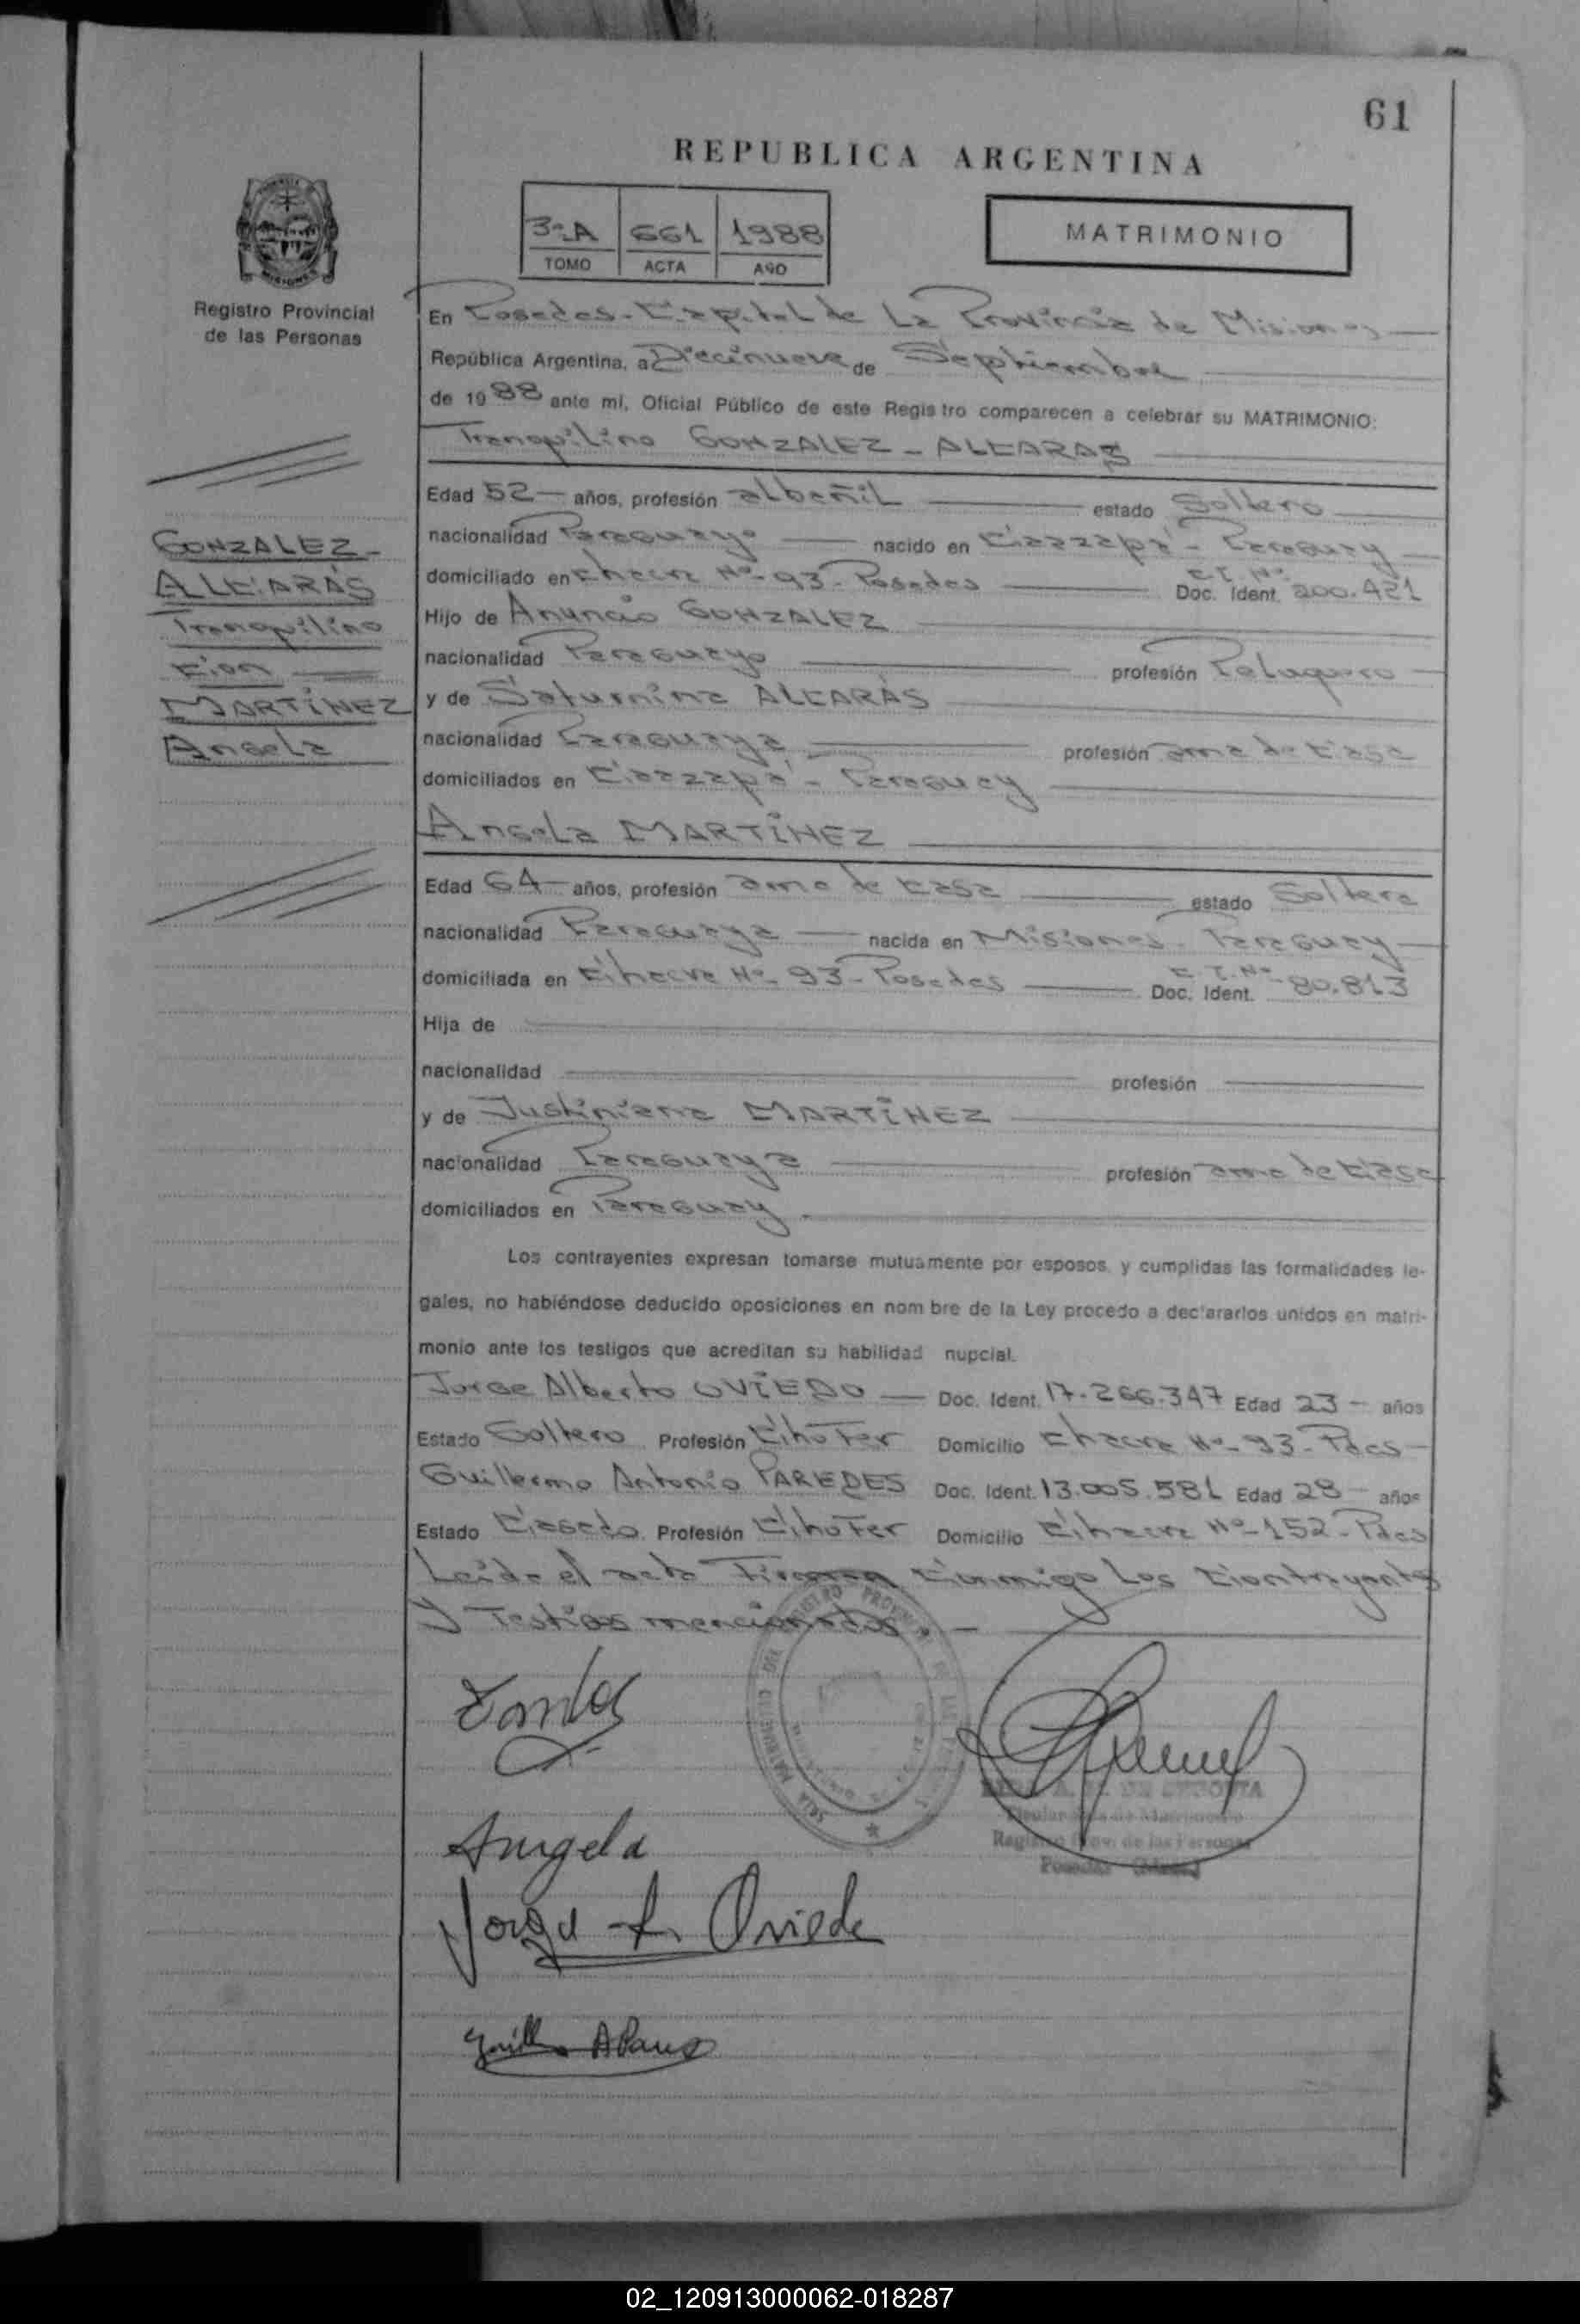 61
REPUBLICA ARGENTINA
3ºA 661 1988
TOMO ACTA AÑO
MATRIMONIO
Registro Provincial
de las Personas
En Posadas - Capital de La Provincia de Misiones
República Argentina, a Diecinueve de Septiembre
de 1988 ante mí, Oficial Público de este Registro comparecen a celebrar su MATRIMONIO:
Tranquilino GONZALEZ - ALCARAS
Edad 52 - años, profesión albañil estado Soltero
nacionalidad Paraguayo nacido en Caazapá - Paraguay
domiciliado en Chacra Nº- 93 - Posadas C.I. Nº Doc. Ident. 200.421
Hijo de Anuncio GONZALEZ
nacionalidad Paraguayo profesión Peluquero
y de Saturnina ALCARÁS
nacionalidad Paraguaya profesión ama de Casa
domiciliados en Caazapá - Paraguay
Angela MARTÍNEZ
Edad 64 - años, profesión ama de Casa estado Soltera
nacionalidad Paraguaya nacida en Misiones - Paraguay
domiciliada en Chacra Nº- 93 - Posadas C.I. Nº Doc. Ident. 80.813
Hija de
nacionalidad profesión
y de Justiniana MARTÍNEZ
nacionalidad Paraguaya profesión ama de Casa
domiciliados en Paraguay.
GONZALEZ -
ALCARÁS
Tranquilino
Con
MARTÍNEZ
Angela
Los contrayentes expresan tomarse mutuamente por esposos, y cumplidas las formalidades le-
gales, no habiéndose deducido oposiciones en nombre de la Ley procedo a declararlos unidos en matri-
monio ante los testigos que acreditan su habilidad nupcial.
Jorge Alberto OVIEDO - Doc. Ident. 17.266.347 Edad 23 - años
Estado Soltero Profesión Chofer Domicilio Chacra Nº- 93 - Pdas -
Guillermo Antonio PAREDES Doc. Ident. 13.005.581 Edad 28 - años
Estado Casado. Profesión Chofer Domicilio Chacra Nº- 152 - Pdas
Leída el acta Firman Conmigo Los Contrayentes
y Testigos mencionados. -
Angela
Jorge A. Oviedo
DE SEGOVIA
Registro Prov. de las Personas
Posadas
02_120913000062-018287